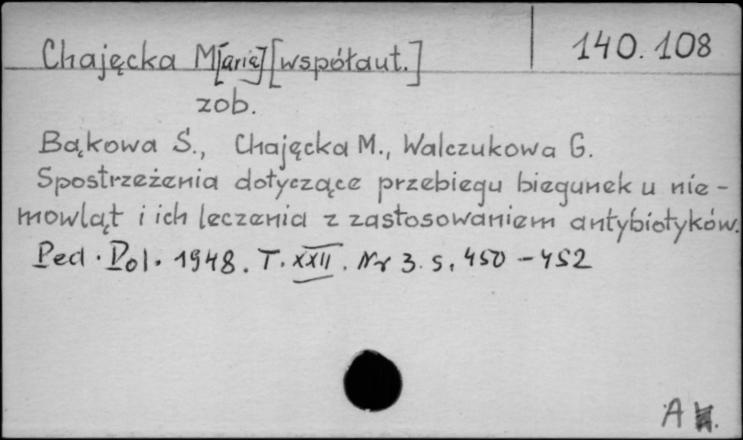 Chajęcka M[aria] [współaut.] 140.108
zob.
Bąkowa S., Chajęcka M., Walczukowa G.
Spostrzeżenia dotyczące przebiegu biegunek u nie-
mowląt i ich leczenia z zastosowaniem antybiotyków.
Ped. Pol. 1948. T. XXII. Nr 3. s. 450-452
A